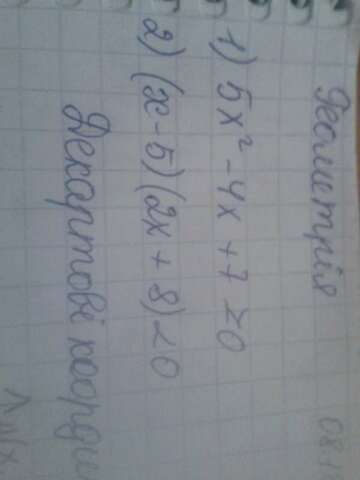 Геометрія
08.1
1) 5x² - 4x + 7 ≥ 0
2) (x - 5)(2x + 8) < 0
Декартові коорди